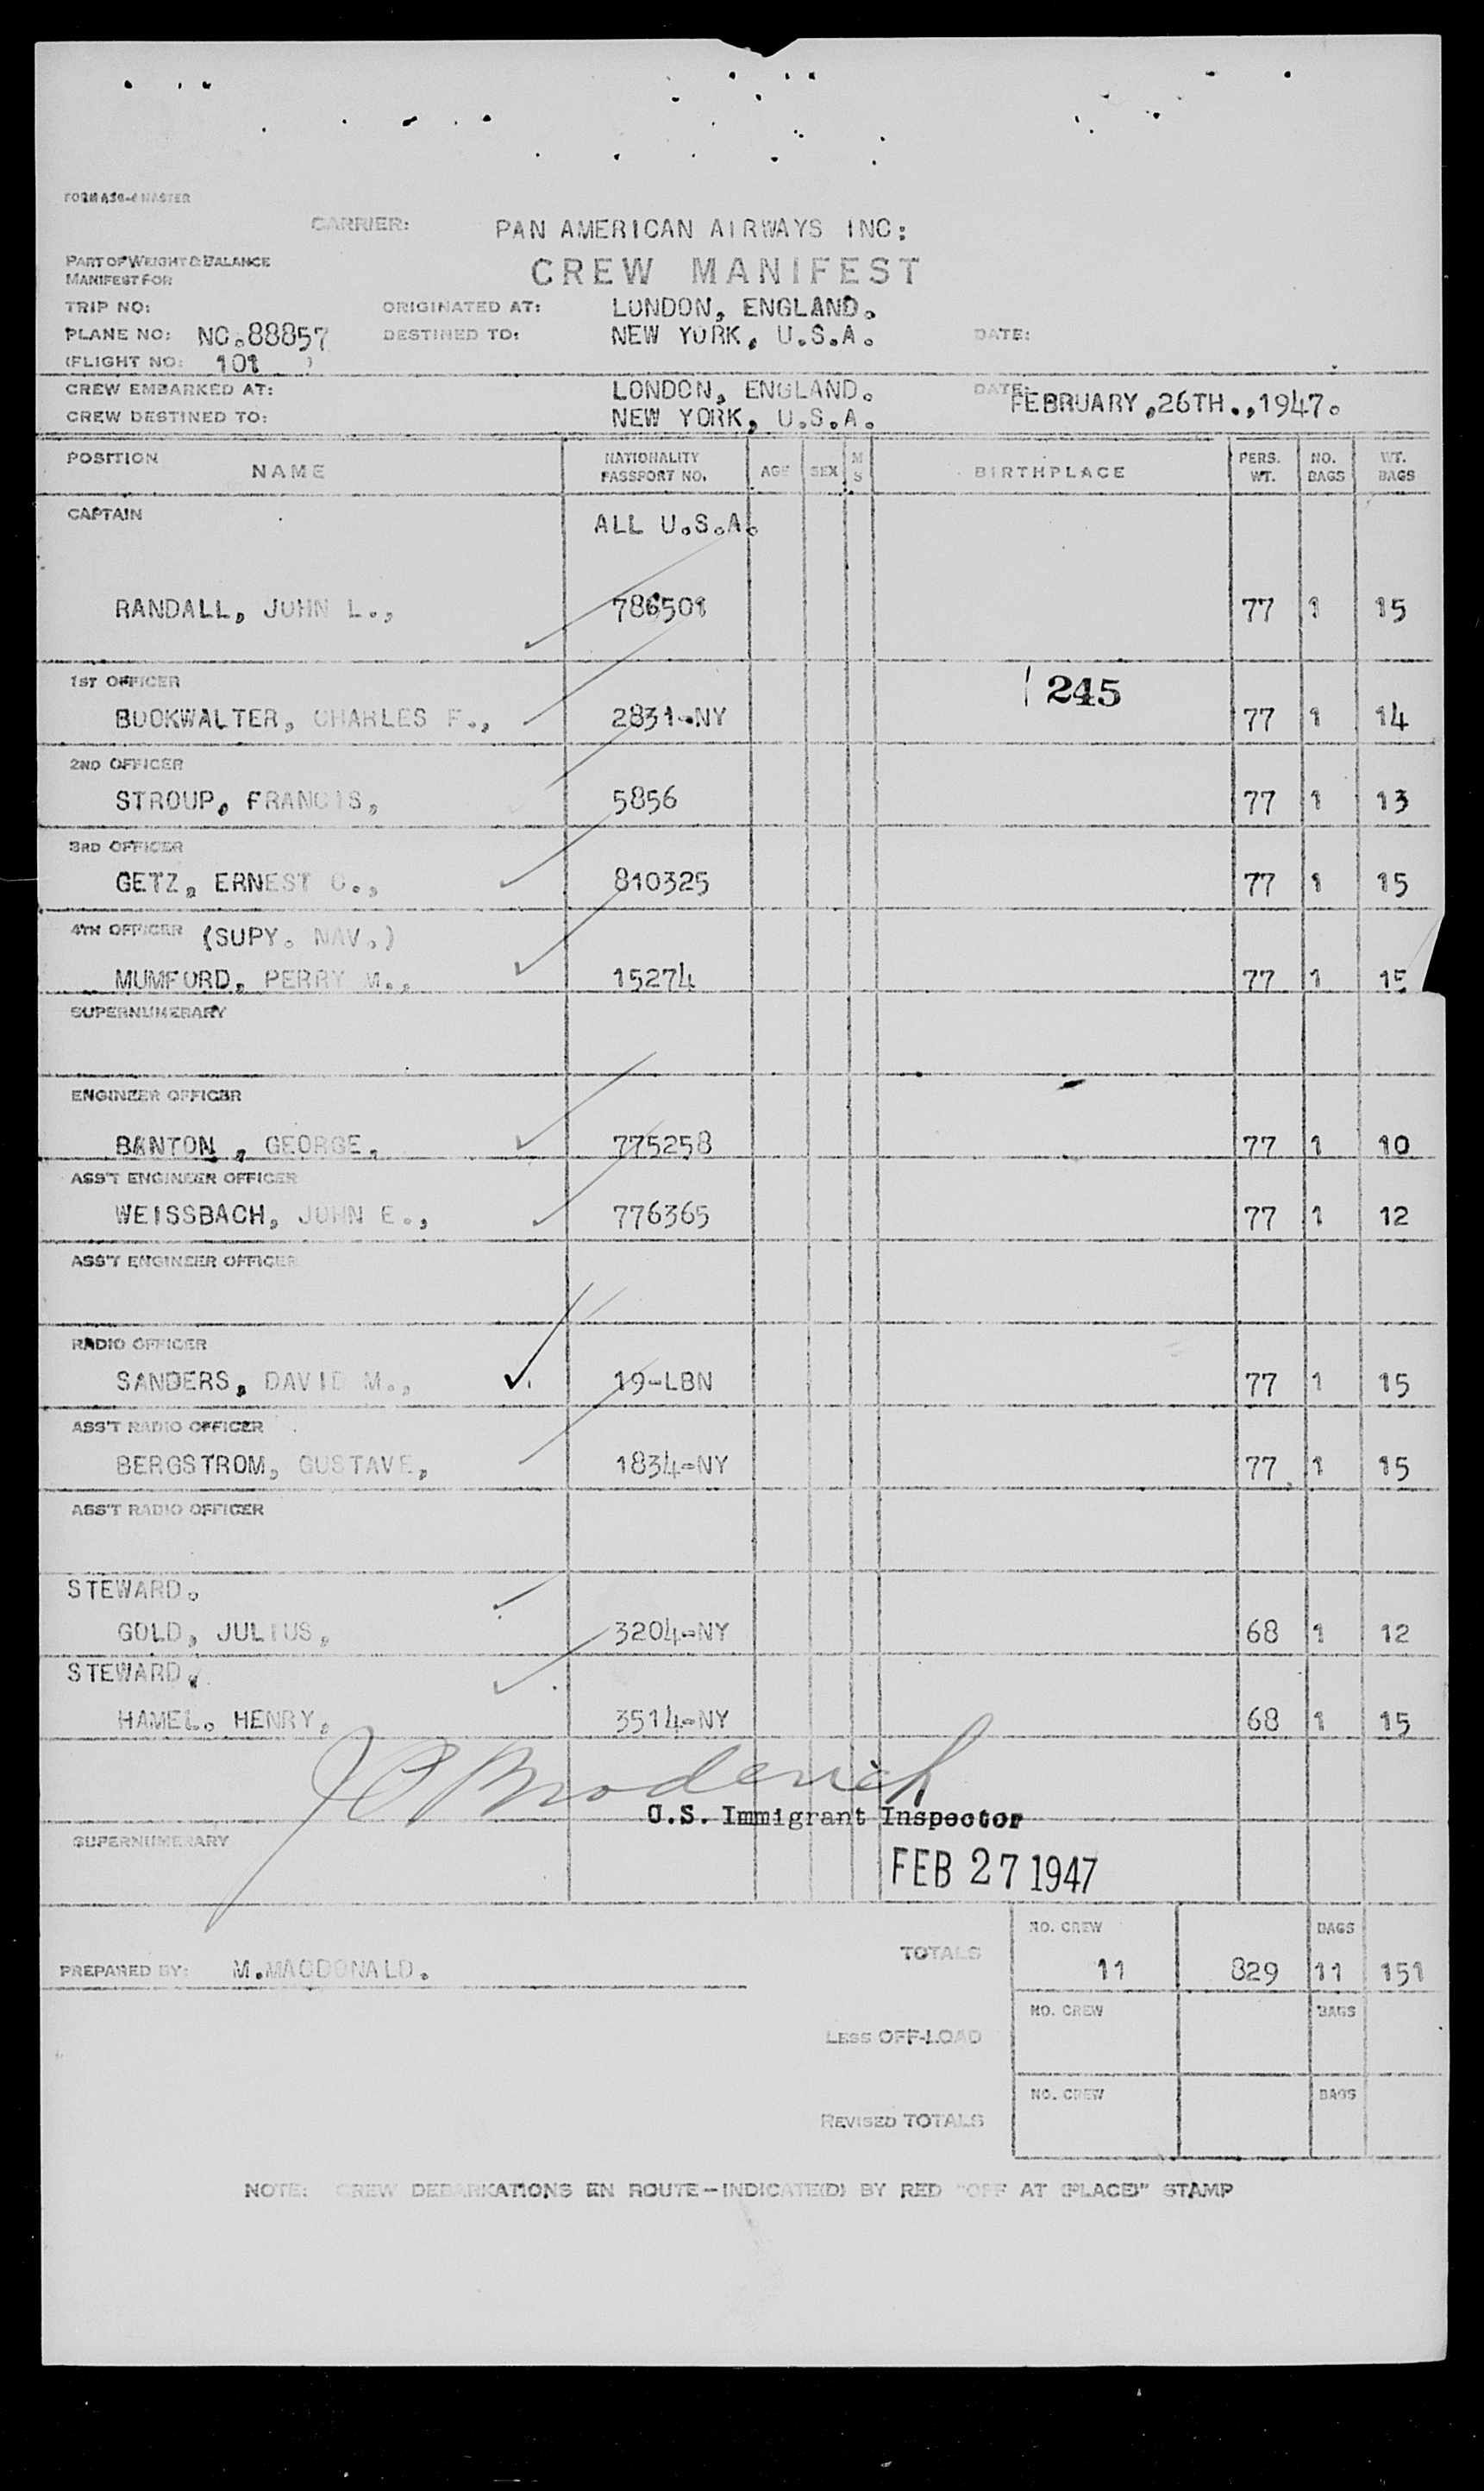 FORM A30-4 MASTER
CARRIER: PAN AMERICAN AIRWAYS INC:
PART OF WEIGHT & BALANCE
MANIFEST FOR
CREW MANIFEST
TRIP NO: ORIGINATED AT: LONDON, ENGLAND.
PLANE NO: NC.88857 DESTINED TO: NEW YORK, U.S.A. DATE:
(FLIGHT NO: 101 )
CREW EMBARKED AT: LONDON, ENGLAND. DATE: FEBRUARY,26TH.,1947.
CREW DESTINED TO: NEW YORK, U.S.A.
POSITION NAME NATIONALITY PASSPORT NO. AGE SEX M S BIRTHPLACE PERS. WT. NO. BAGS WT. BAGS
CAPTAIN ALL U.S.A.
RANDALL, JOHN L., 786501 77 1 15
1ST OFFICER 245
BOOKWALTER, CHARLES F., 2831-NY 77 1 14
2ND OFFICER
STROUP, FRANCIS, 5856 77 1 13
3RD OFFICER
GETZ, ERNEST C., 810325 77 1 15
4TH OFFICER (SUPY. NAV.)
MUMFORD, PERRY M., 15274 77 1 15
SUPERNUMERARY
ENGINEER OFFICER
BANTON , GEORGE, 775258 77 1 10
ASS'T ENGINEER OFFICER
WEISSBACH, JOHN E., 776365 77 1 12
ASS'T ENGINEER OFFICER
RADIO OFFICER
SANDERS, DAVID M., 19-LBN 77 1 15
ASS'T RADIO OFFICER
BERGSTROM, GUSTAVE, 1834-NY 77 1 15
ASS'T RADIO OFFICER
STEWARD.
GOLD, JULIUS, 3204-NY 68 1 12
STEWARD.
HAMEL. HENRY, 3514-NY 68 1 15
J C Broderick
U.S. Immigrant Inspector
SUPERNUMERARY
FEB 27 1947
NO. CREW BAGS
PREPARED BY: M.MACDONALD. TOTALS 11 829 11 151
NO. CREW BAGS
LESS OFF-LOAD
NO. CREW BAGS
REVISED TOTALS
NOTE: CREW DEBARKATIONS EN ROUTE-INDICATE(D) BY RED "OFF AT (PLACE)" STAMP